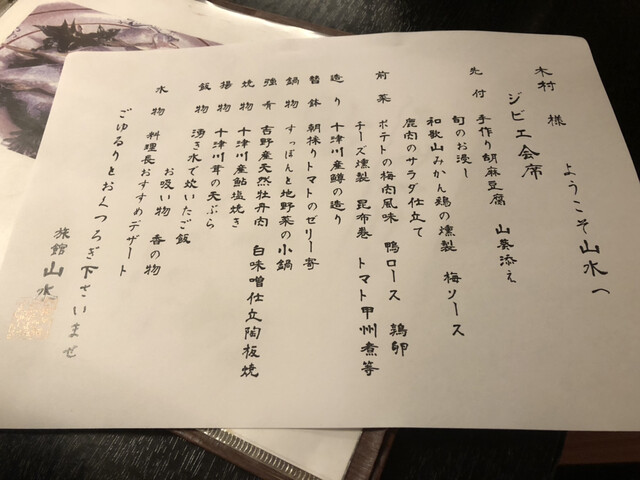 木村 様 ようこそ山水へ
ジビエ会席
先付 手作り胡麻豆腐 山葵添え
旬のお浸し
和歌山みかん鶏の燻製 梅ソース
鹿肉のサラダ仕立て
前菜 ポテトの梅肉風味 鴨ロース 鶉卵
チーズ燻製 昆布巻 トマト甲州煮等
造り 十津川産鱒の造り
替鉢 朝採りトマトのゼリー寄
鍋物 すっぽんと地野菜の小鍋
強肴 吉野産天然牡丹肉 白味噌仕立陶板焼
焼物 十津川産鮎塩焼き
揚物 十津川茸の天ぷら
飯物 湧き水で炊いたご飯
お吸い物 香の物
水物 料理長おすすめデザート
ごゆるりとおくつろぎ下さいませ
旅館 山水